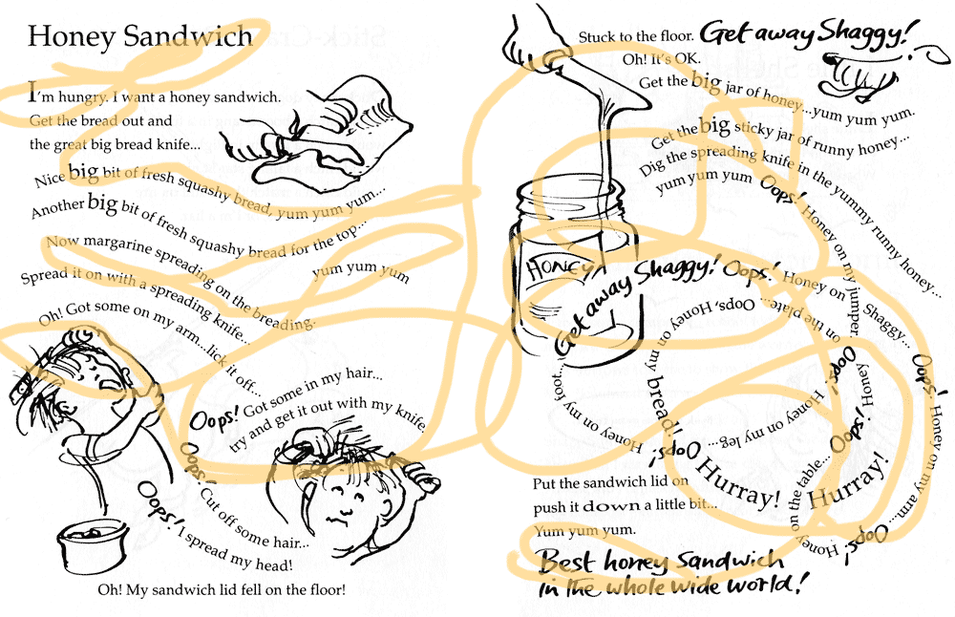 Honey Sandwich
I'm hungry. I want a honey sandwich.
Get the bread out and
the great big bread knife...
Nice big bit of fresh squashy bread, yum yum yum...
Another big bit of fresh squashy bread for the top...
yum yum yum
Now margarine spreading on the breading.
Spread it on with a spreading knife...
Oh! Got some on my arm...lick it off...
Oops! Got some in my hair...
try and get it out with my knife.
Oops! Cut off some hair...
Oops! I spread my head!
Oh! My sandwich lid fell on the floor!
Stuck to the floor. Get away Shaggy!
Oh! It's OK.
Get the big jar of honey...yum yum yum.
Get the big sticky jar of runny honey...
Dig the spreading knife in the yummy runny honey...
yum yum yum Oops! Honey on my jumper.
Oops! Honey on my leg...
Oops! Honey on my foot.
Get away Shaggy! Oops! Honey on Shaggy...
Oops! Honey on my arm...
Oops! Honey on the table...
Oops! Honey on the plate...
Oops, Honey on my bread!
Hurray! Hurray!
HONEY!
Put the sandwich lid on
push it down a little bit...
Yum yum yum.
Best honey Sandwich
in the whole wide world!